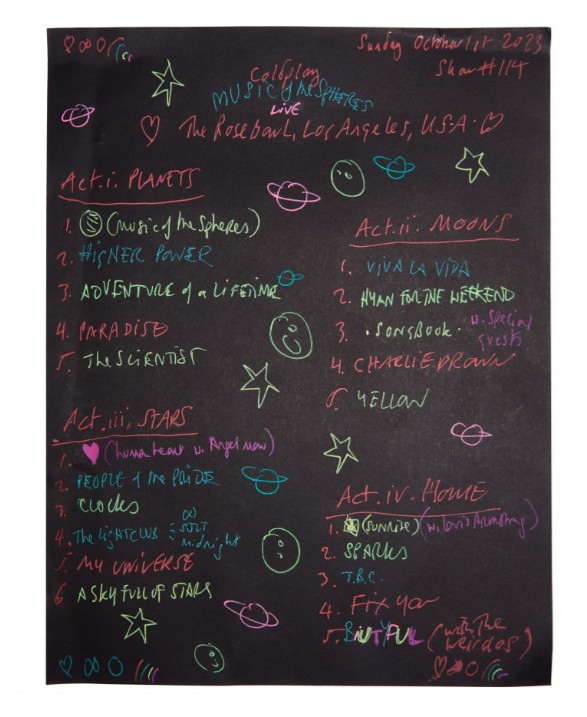 Sunday October 1st 2023
Show #114
Coldplay
MUSIC of the SPHERES
LIVE
The Rosebowl, Los Angeles, USA.
Act.i. PLANETS
1. (music of the spheres)
2. HIGHER POWER
3. ADVENTURE of a LIFETIME
4. PARADISE
5. THE SCIENTIST
Act.ii. MOONS
1. VIVA LA VIDA
2. HYMN FOR THE WEEKEND
3. ·SONGBOOK· w. special guests
4. CHARLIE BROWN
5. YELLOW
Act.iii, STARS
1. (human heart w. Angel moon)
2. PEOPLE of the PRIDE
3. CLOCKS
4. THE LIGHTCLUB ∞
SJLT
midnight
5. MY UNIVERSE
6 A SKY FULL OF STARS
Act.iv. HOME
1. (SUNRISE) (w. Louis Armstrong)
2. SPARKS
3. T.B.C.
4. FIX YOU
5. BIUTYFUL (with The weirdos)